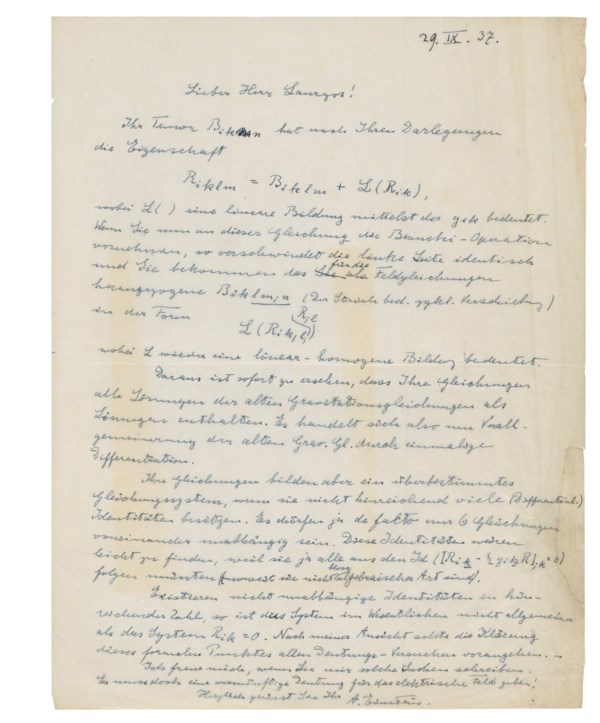 29. IX. 37.
Lieber Herr Lanczos!
Ihr Tensor Biklm hat nach Ihren Darlegungen
die Eigenschaft
Riklm = Biklm + L(Rik),
wobei L( ) eine lineare Bildung mittelst der gik bedeutet.
Wenn Sie nun an dieser Gleichung die Bianchi-Operation
vornehmen, so verschwindet die linke Seite identisch
und Sie bekommen das für die Feldgleichungen
herangezogene Biklm;n (Der Strich bed. zykl. Verschiebung)
in der Form
L(Rik,l) Ril
wobei L wieder eine linear-homogene Bildung bedeutet.
Daraus ist sofort zu ersehen, dass Ihre Gleichungen
alle Lösungen der alten Gravitationsgleichungen als
Lösungen enthalten. Es handelt sich also um Verall-
gemeinerung der alten Grav. Gl. durch einmalige
Differentiation.
Ihre Gleichungen bilden aber ein überbestimmtes
Gleichungssystem, wenn sie nicht hinreichend viele (Differential-)
Identitäten besitzen. Es dürfen ja de fakto nur 6 Gleichungen
voneinander unabhängig sein. Diese Identitäten wären
leicht zu finden, weil sie ja alle aus den Id ([Rik - ½ gik R];k = 0)
folgen müssten (soweit sie nicht bloss algebraischer Art sind).
Existieren nicht unabhängige Identitäten in hin-
reichender Zahl, so ist dies System im Wesentlichen nicht allgemeiner
als das System Rik = 0. Nach meiner Ansicht sollte die Klärung
dieses formalen Punktes allen Deutungs-Versuchen vorangehen.
Ich freue mich, wenn Sie mir solche Sachen schreiben.
Es muss doch eine vernünftige Deutung für das elektrische Feld geben!
Herzlich grüsst Sie Ihr A. Einstein.